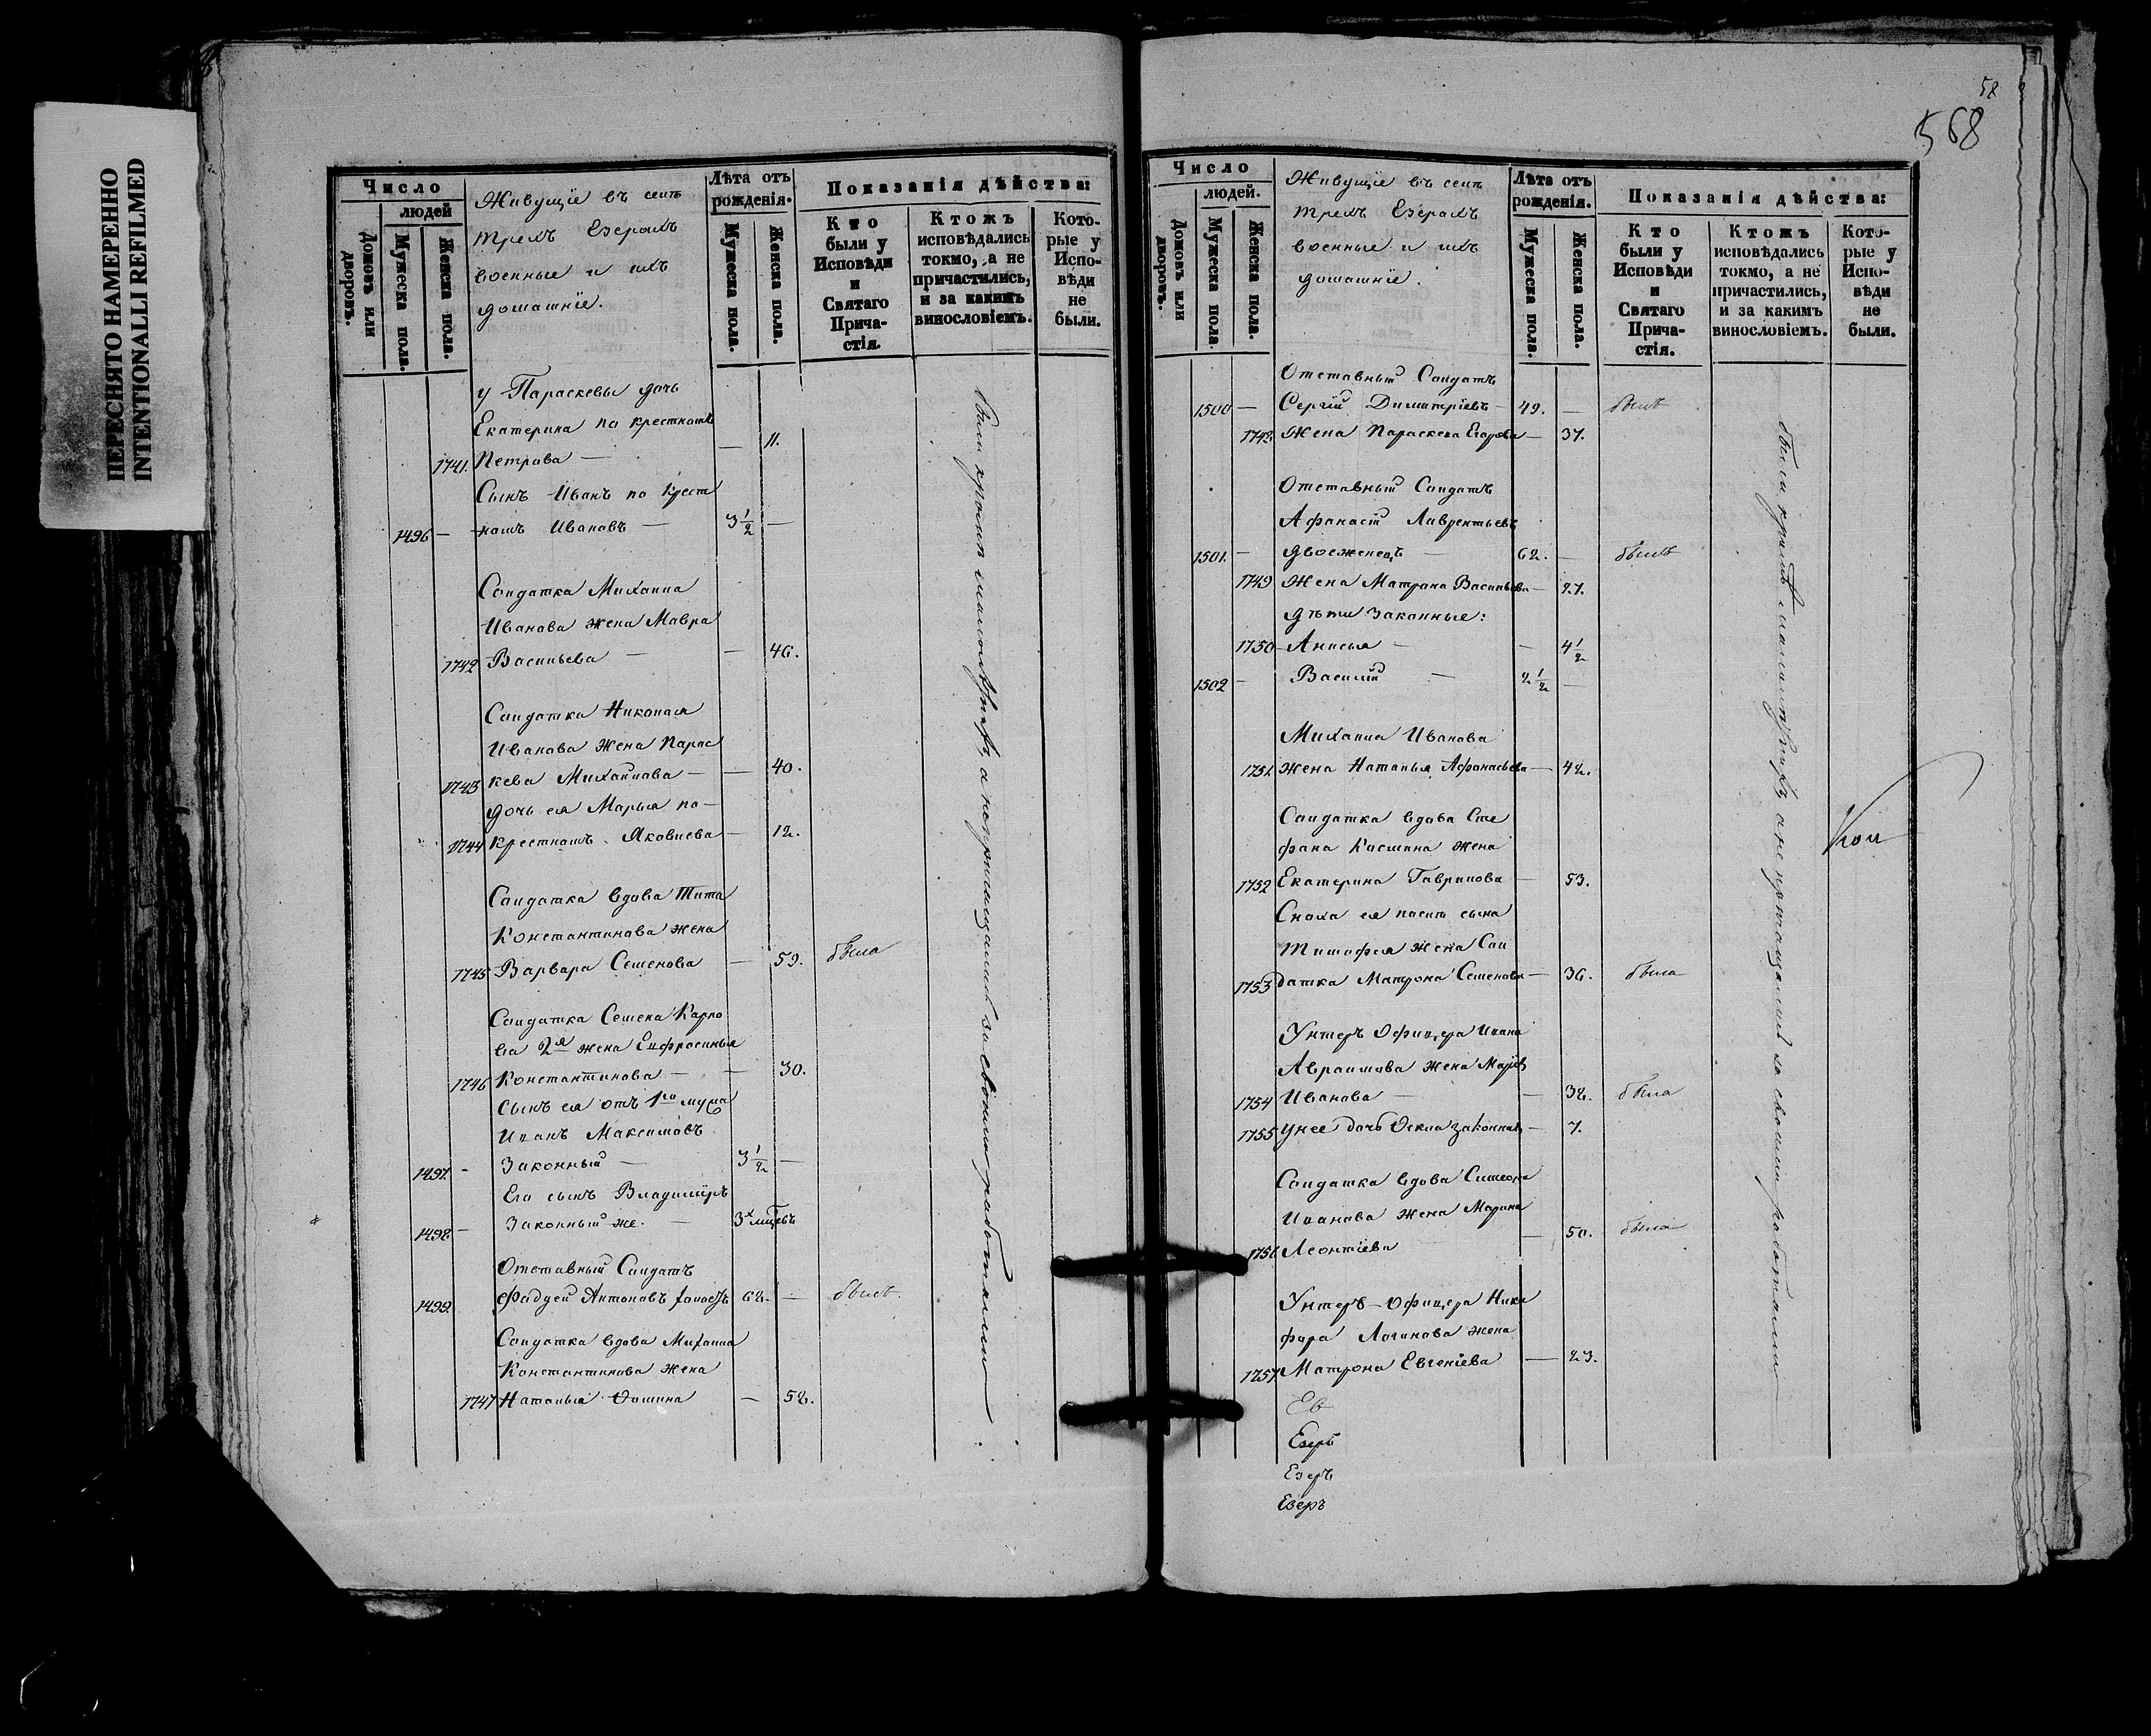 ПЕРЕСНЯТО НАМЕРЕННО
INTENTIONALLI REFILMED
Число
людей
Домовъ или дворовъ.
Мужеска пола.
Женска пола.
Живущіе въ селѣ
трехъ Езерахъ
военные и ихъ
домашніе.
Лѣта отъ
рожденія.
Мужеска пола.
Женска пола.
Показанія дѣйства:
Кто
были у
Исповѣди
и
Святаго
Прича-
стія.
Ктожъ
исповѣдались
токмо, а не
причастились,
и за какимъ
винословіемъ.
Кото-
рые у
Испо-
вѣди
не
были.
у Параскевы дочь
Екатерина по крестномъ
1741. Петрова — — 11.
Сынъ Иванъ по крест
1496 — номъ Ивановъ — 3 1/2 —
Солдатка Михаила
Иванова жена Мавра
1742 Васильева — — 46.
Солдатка Николая
Иванова жена Парас
1743 кева Михайлова — — 40.
дочь ея Марья по-
1744 крестномъ Яковлева — 12.
Солдатка вдова Тита
Константинова жена
1745 Варвара Семенова — 59. была
Солдатка Семена Карпо
ва 2я жена Евфросинья
1746 Константинова — — 30.
сынъ ея отъ 1го мужа
Иванъ Максимовъ
1497. - Законный — 3 1/2 —
Его сынъ Владиміръ
1498 — Законный же. — 3х мцевъ
Отставный Солдатъ
1499 Фадей Антоновъ холостъ 62. — былъ.
Солдатка вдова Михаила
Константинова жена
1747 Наталья Фомина — 52.
были кромѣ а непричащались за своими работами.
58
568
Число
людей.
Домовъ или дворовъ.
Мужеска пола.
Женска пола.
Живущіе въ селѣ
трехъ Езерахъ
военные и ихъ
домашніе.
Лѣта отъ
рожденія.
Мужеска пола.
Женска пола.
Показанія дѣйства:
Кто
были у
Исповѣди
и
Святаго
Прича-
стія.
Ктожъ
исповѣдались
токмо, а не
причастились,
и за какимъ
винословіемъ.
Кото-
рые у
Испо-
вѣди
не
были.
Отставный Солдатъ
1500 — Сергій Димитріевъ — 49. — былъ
1748. Жена Параскева Егорова — 37.
Отставный Солдатъ
Афанасій Лаврентьевъ
1501. — двоеженецъ — 62. — былъ
1749 Жена Матрона Васильева — 27.
дѣти Законные:
1750 Анисья — — 4 1/2
1502 — Василій — 2 1/2 —
Михаила Иванова
1751. жена Наталья Афонасьева — 42.
Солдатка вдова Сте
фана Касмина жена
1752 Екатерина Гаврилова — 53.
Сноха ея послѣ сына
Тимофея жена Сол
1753 датка Матрона Семенова — 36. была
Унтеръ Офицера Ивана
Авраимова жена Марія
1754 Иванова — — 32. была
1755 у нее дочь Фекла законная — 7.
Солдатка вдова Симеона
Иванова жена Марина
1756 Леонтіева — — 50. была
Унтеръ-Офицера Ники
фора Логинова жена
1757. Матрона Евгеніева — 23.
Ев
Езеръ
Езеръ
Езеръ
были кромѣ а не причащались за своими работами